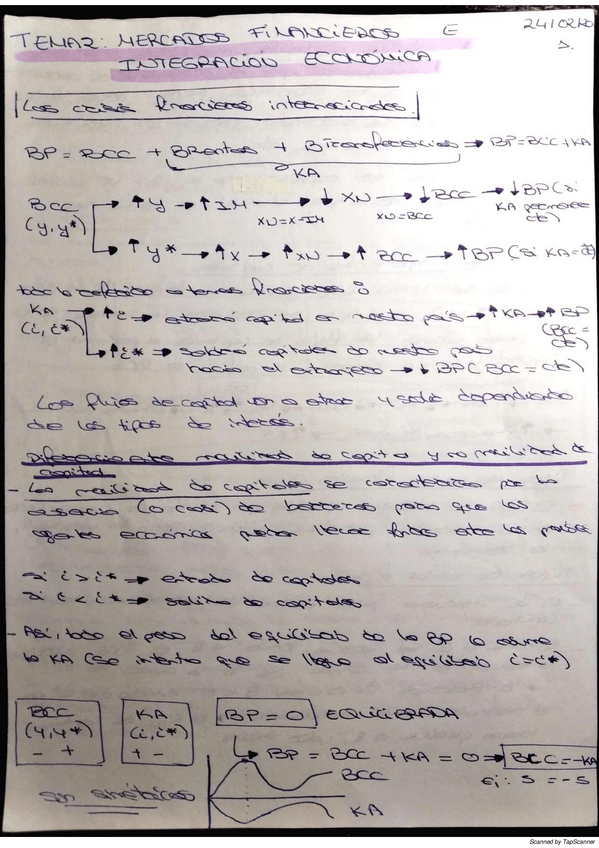 24/02/20
TEMA 2: MERCADOS FINANCIEROS E
INTEGRACIÓN ECONÓMICA
Las crisis financieras internacionales.
BP = BCC + BRentas + BTransferencias → BP = BCC + KA
KA
BCC (y, y*) → ↑y → ↑IM → ↓XN → ↓BCC → ↓BP (si KA permanece cte)
XN = X - IM XN = BCC
→ ↑y* → ↑X → ↑XN → ↑BCC → ↑BP (si KA = cte)
todo lo referido a temas financieros:
KA (i, i*) → ↑i → entrará capital en nuestro país → ↑KA → ↑BP (BCC = cte)
→ ↑i* → saldrán capitales de nuestro país
hacia el extranjero → ↓BP (BCC = cte)
Los flujos de capital van a entrar y salir dependiendo
de los tipos de interés.
Diferencia entre movilidad de capital y no movilidad de
capital
- La movilidad de capitales se caracteriza por la
ausencia (o casi) de barreras para que los
agentes económicos puedan llevar fondos entre los países
Si i > i* → entrada de capitales
Si i < i* → salida de capitales
- Así, todo el peso del equilibrio de la BP lo asume
la KA (se intenta que se llegue al equilibrio i = i*)
BCC
(y, y*)
- +
KA
(i, i*)
+ -
son simétricos
BP = 0 EQUILIBRADA
→ BP = BCC + KA = 0 → BCC = -KA
Ej: 5 = -5
BCC
KA
Scanned by TapScanner